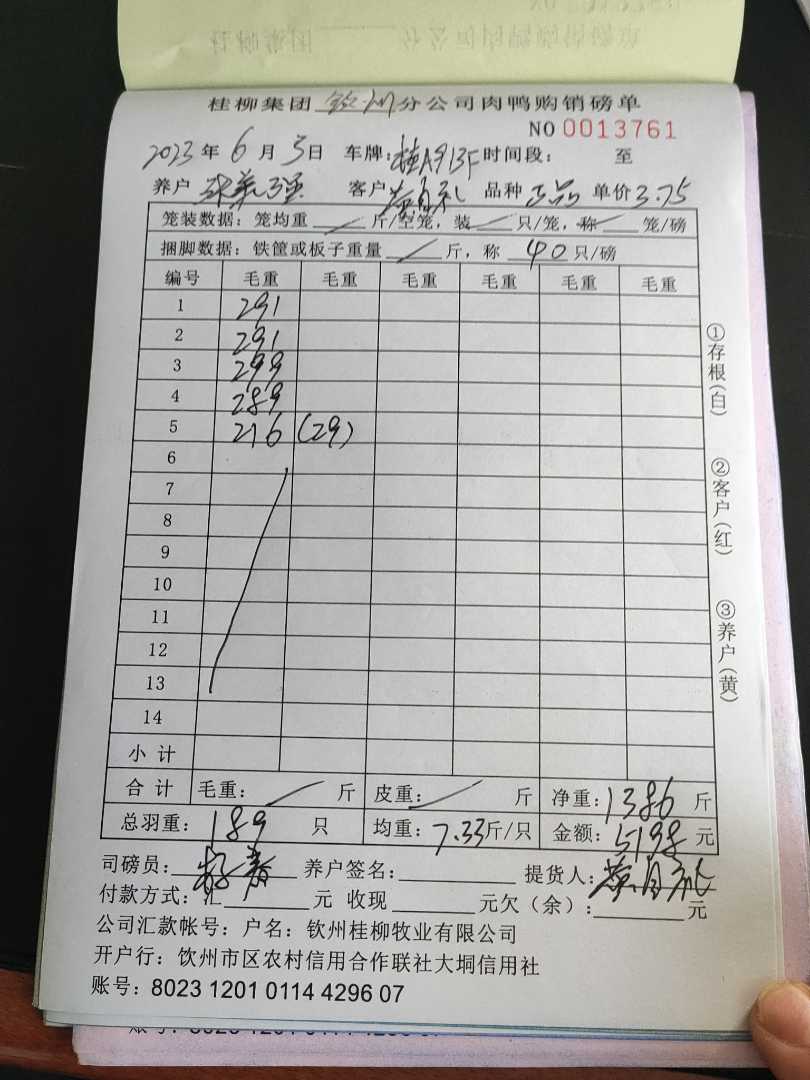 桂柳集团 钦州 分公司肉鸭购销磅单
NO 0013761
2023 年 6 月 5 日 车牌: 时间段: 至
养户 客户 品种 正品 单价 3.75
笼装数据: 笼均重 / 斤/空笼, 装 / 只/笼, 称 / 笼/磅
捆脚数据: 铁筐或板子重量 / 斤, 称 40 只/磅
编号 毛重 毛重 毛重 毛重 毛重 毛重
1 291
2 291
3 299
4 289
5 216 (29)
6
7
8
9
10
11
12
13
14
小计
合计 毛重: / 斤 皮重: / 斤 净重: 1386 斤
总羽重: 189 只 均重: 7.33 斤/只 金额: 5198 元
司磅员: 养户签名: 提货人:
付款方式: 汇 元 收现 元欠(余): 元
公司汇款帐号: 户名: 钦州桂柳牧业有限公司
开户行: 钦州市区农村信用合作联社大垌信用社
账号: 8023 1201 0114 4296 07
①存根(白)
②客户(红)
③养户(黄)